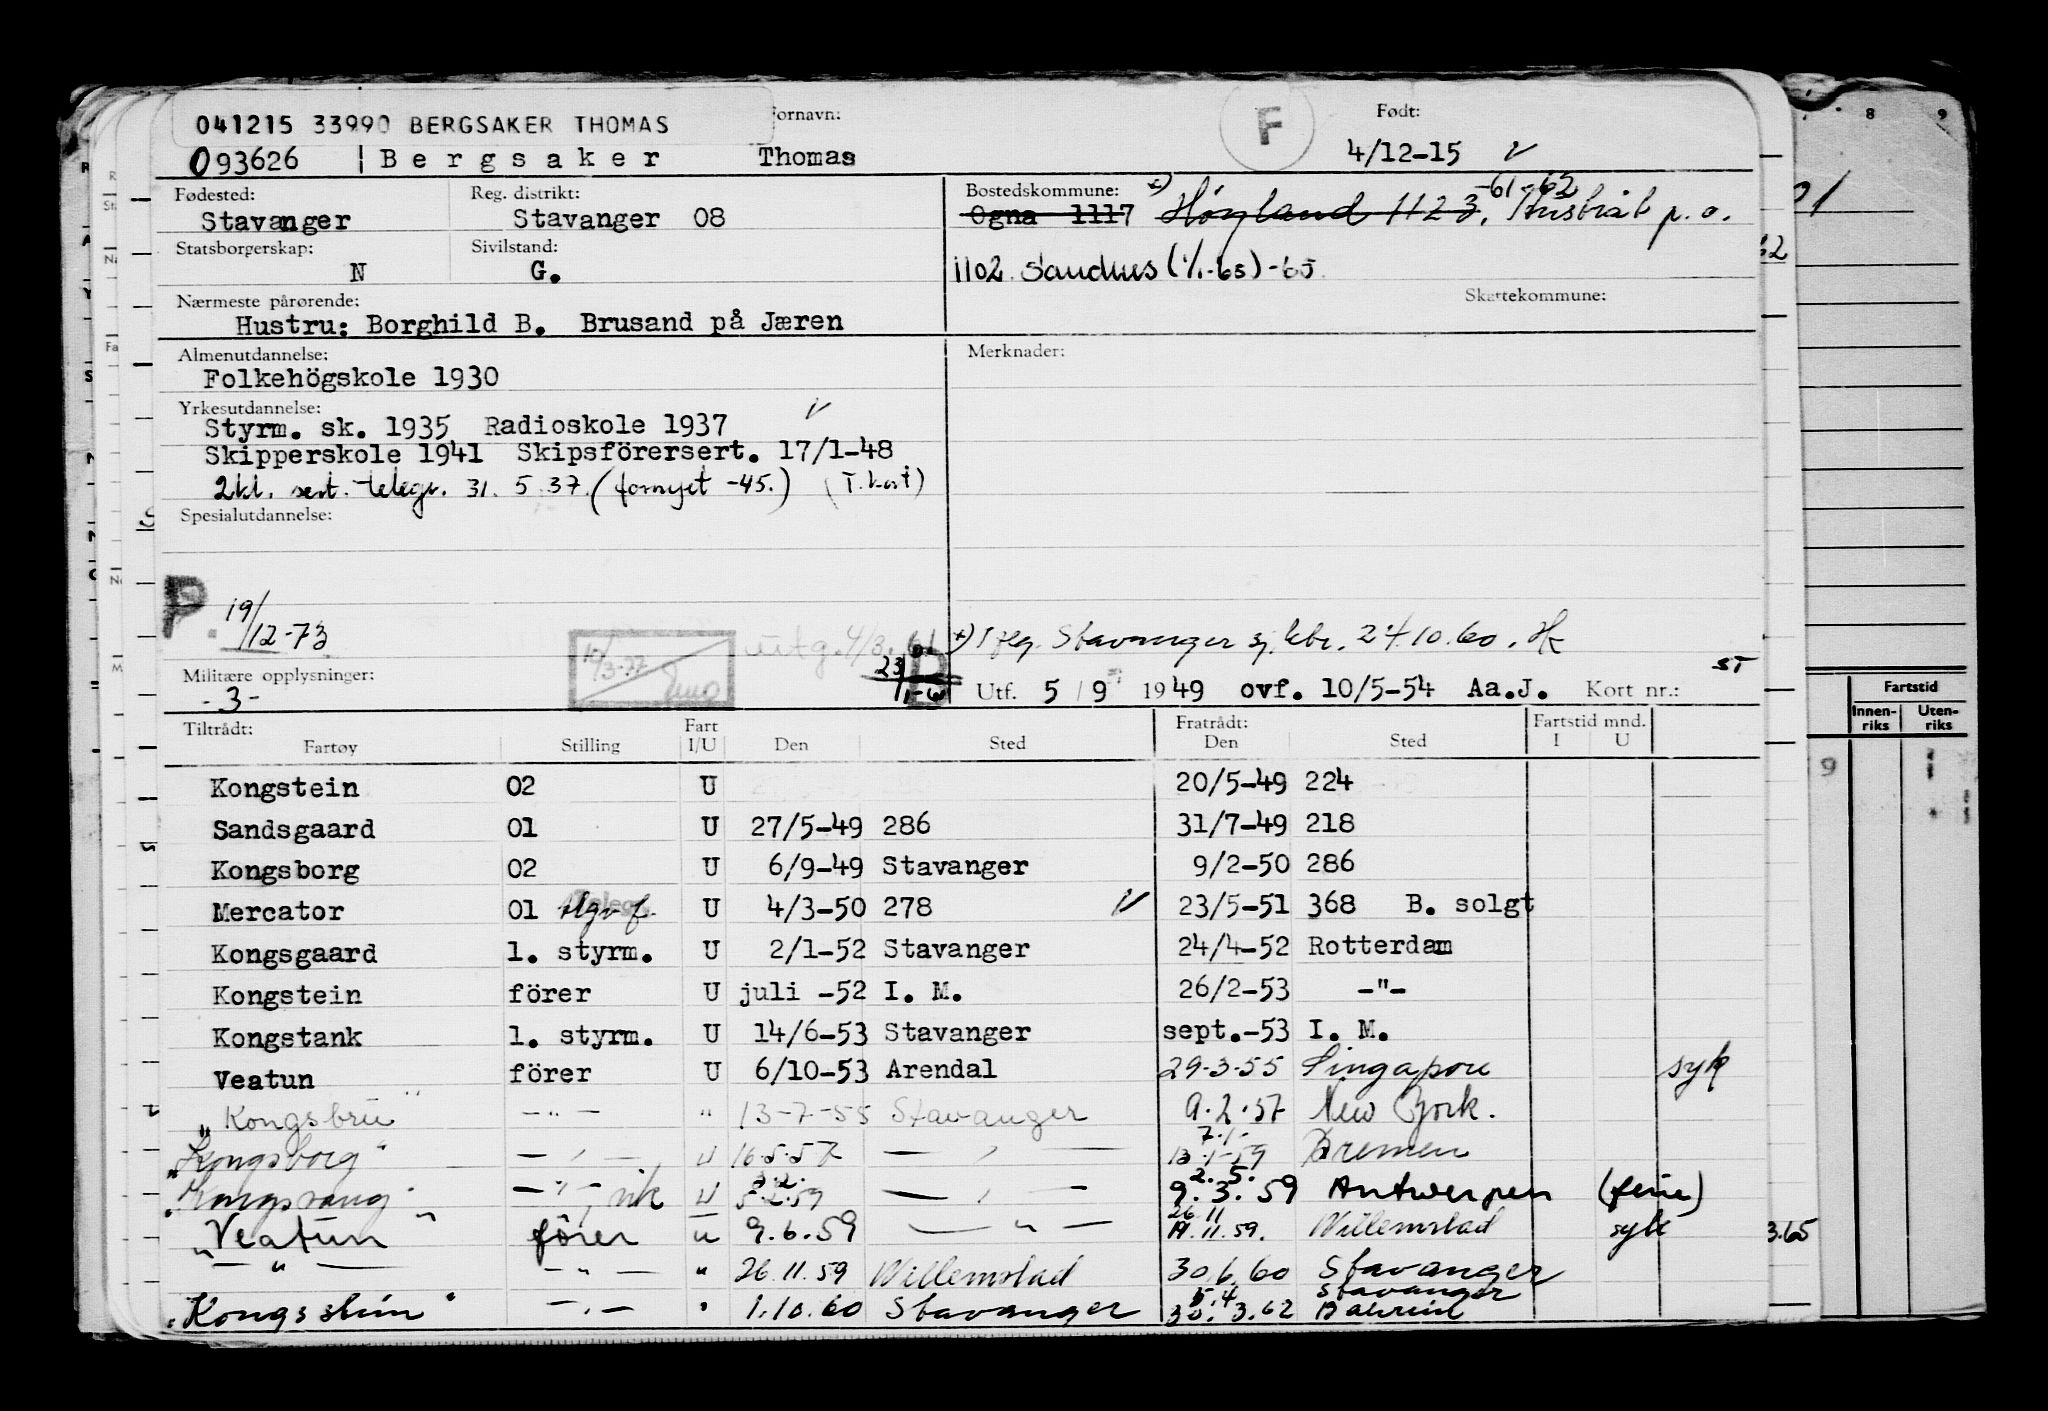 041215 33990 BERGSAKER THOMAS
Fornavn:
F
Født:
093626 Bergsaker Thomas
4/12-15
Fødested:
Reg. distrikt:
Bostedskommune:
-61 -62
Stavanger
Stavanger 08
Ogna 1117 Høyland 1123, p.o.
Statsborgerskap:
Sivilstand:
N
G.
1102 Sandnes (1/1-65) -65
Nærmeste pårørende:
Skattekommune:
Hustru: Borghild B. Brusand på Jæren
Almenutdannelse:
Merknader:
Folkehögskole 1930
Yrkesutdannelse:
Styrm. sk. 1935 Radioskole 1937
Skipperskole 1941 Skipsförersert. 17/1-48
2kl. sert. telegr. 31. 5. 37. (fornyet -45.) (T. kort)
Spesialutdannelse:
P.
19/12-73
10/3-77
utg. 4/3. 61
x) Iflg. Stavanger sj. ktr. 24.10.60.
23/1-60
B
ST
Militære opplysninger:
-3-
Utf. 5/9 1949 ovf. 10/5-54 Aa.J. Kort nr.:
Tiltrådt:
Fart
Fratrådt:
Fartstid mnd.
Fartøy Stilling I/U Den Sted Den Sted I U
Kongstein 02 U 20/5-49 224
Sandsgaard 01 U 27/5-49 286 31/7-49 218
Kongsborg 02 U 6/9-49 Stavanger 9/2-50 286
Mercator 01 U 4/3-50 278 23/5-51 368 B. solgt
Kongsgaard 1. styrm. U 2/1-52 Stavanger 24/4-52 Rotterdam
Kongstein förer U juli -52 I. M. 26/2-53 -"-
Kongstank 1. styrm. U 14/6-53 Stavanger sept.-53 I. M.
Veatun förer U 6/10-53 Arendal 29.3.55 Singapore syk
"Kongsbru" -"- " 13-7-55 Stavanger 9.2.57 New York.
7.1-
"Kongsborg" -"- U 16.5.57 -"- 13.1-59 Bremen
3.2. 2. 5.
"Kongsvang" -"- vik U 5.2.59 -"- 9.3.59 Antwerpen (ferie)
26.11
"Veatun" förer u 9.6.59 -"- 19.11.59. Willemstad syk
-"- -"- " 26.11.59 Willemstad 30.6.60 Stavanger
5.4 Stavanger
"Kongsstein" -"- " 1.10.60 Stavanger 30.3.62 Bahrein
8 9
Fartstid
Innen-riks
Uten-riks
9
3.65